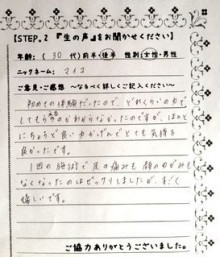 【STEP.2 『生の声』をお聞かせください】
年齢：（30代）前半・後半 性別：女性・男性
ニックネーム：マイコ
ご意見・ご感想 ～なるべく詳しくご記入ください～
初めての体験だったので、どれくらいの力で
してもらうのかわからなかったのですが、ほんと
にちょうど良い力かげんでとても気持ち
良かったです。
1回の施術で足の痛みも 顔のゆがみも
なくなったのはビックリしましたが、すごく
嬉しいです。
ご協力ありがとうございました。